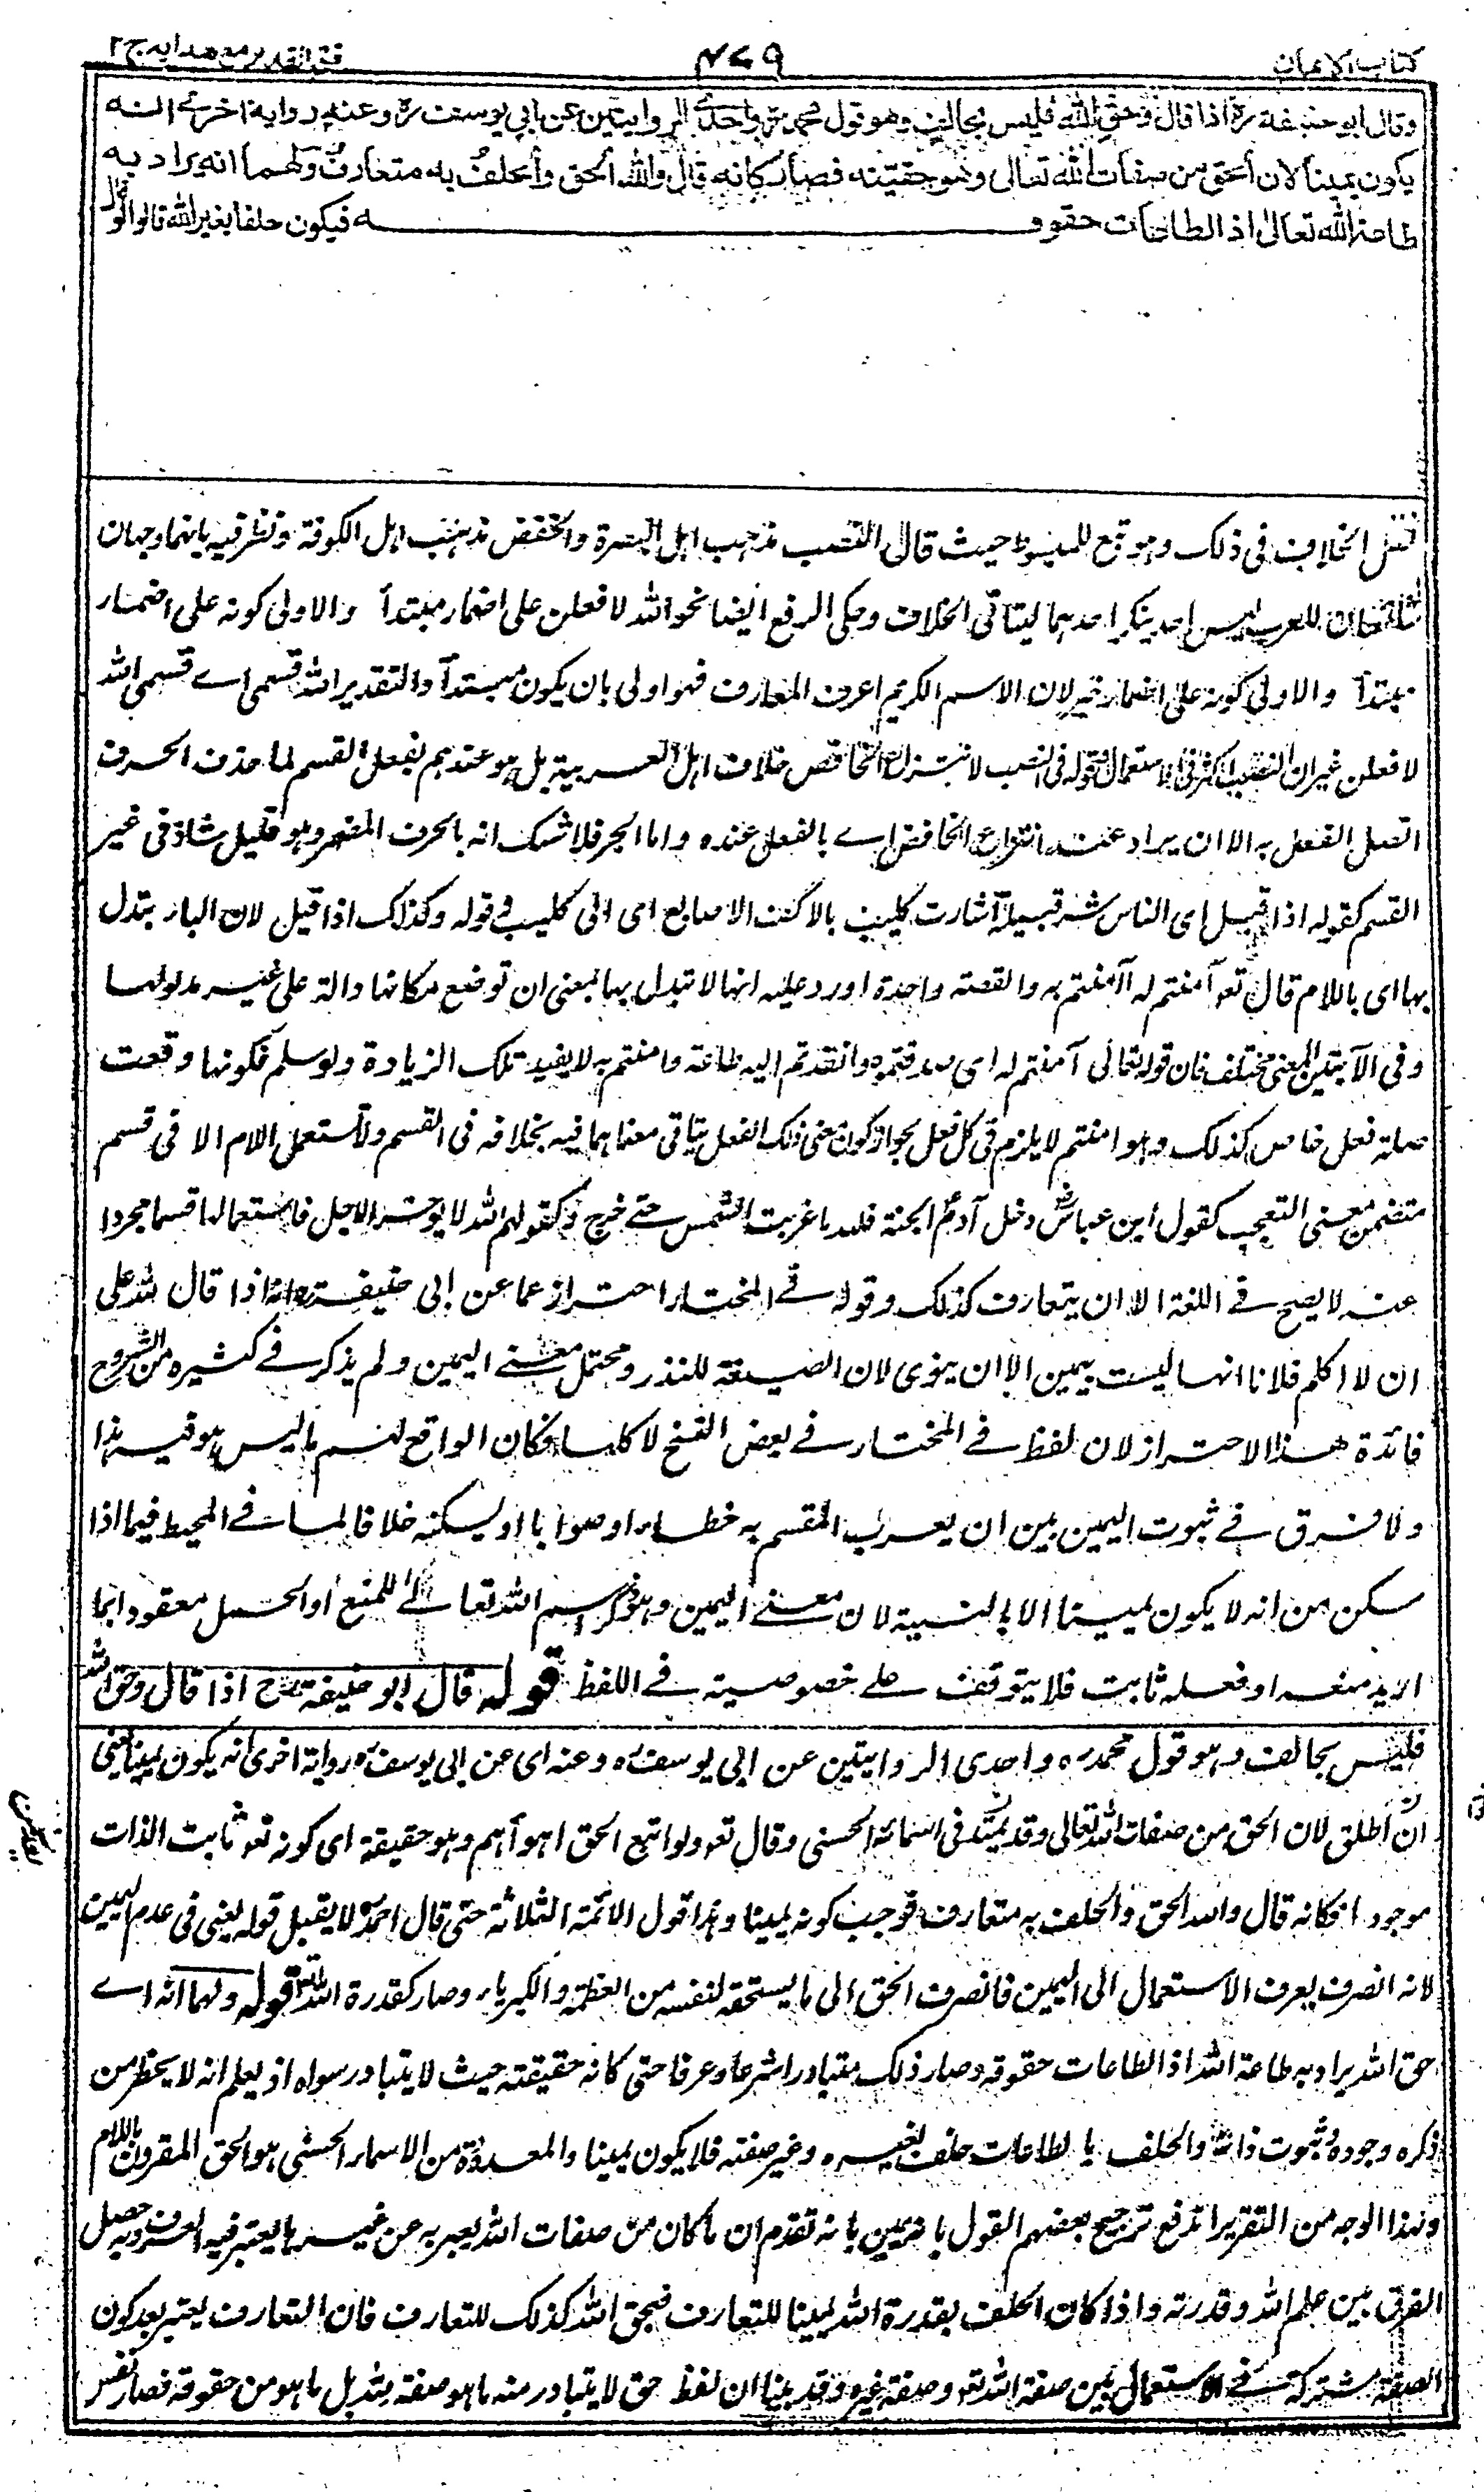 كتاب الايمان
٤٧٩
فتح القدير مع هدايه ج٢
وقال ابو حنيفة ره اذا قال وحق الله فليس بحالف وهو قول محمد ره واحدى الروايتين عن ابي يوسف ره وعنه رواية اخرى انه
يكون يمينا لان الحق من صفات الله تعالى وهو حقيته فصار كانه قال والله الحق والحلف به متعارف ولهما انه يراد به
طاعة الله تعالى اذ الطاعات حقوقه فيكون حلفا بغير الله قالوا لو قال
نقل الخلاف فى ذلك وهو تبع للمبسوط حيث قال النصب مذهب اهل البصرة والخفض مذهب اهل الكوفة ونظر فيه بانهما وجهان
شائعان للعرب ليس احد ينكر احدهما ليتاتى الخلاف وحكى الرفع ايضا نحو الله لا فعلن على اضمار مبتدأ والاولى كونه على اضمار
مبتدأ والاولى كونه على اضمار خبر لان الاسم الكريم اعرف المعارف فهو اولى بان يكون مبتدأ والتقدير الله قسمى اے قسمى الله
لا فعلن غير ان النصب اكثر فى الاستعمال فقوله فى النصب لانتزاع الخافض خلاف اهل العربية بل هو عندهم بفعل القسم لما حذف الحرف
اتصل الفعل به الا ان يراد عند انتزاع الخافض اے بالفعل عنده واما الجر فلا شك انه بالحرف المضمر وهو قليل شاذ فى غير
القسم كقوله اذا قيل اى الناس شر قبيلة اشارت كليب بالاكف الاصابع اى الى كليب قوله وكذلك اذا قيل لان الباء تبدل
بها اى باللام قال تعه آمنتم له أآمنتم به والقصة واحدة اورد عليه انها لا تبدل بها بمعنى ان توضع مكانها دالة على غير مدلولها
وفى الآيتين المعنى مختلف فان قوله تعالى آمنتم له اى صدقتموه وانقدتم اليه طاعة وامنتم به لا يفيد تلك الزيادة ولو سلم فكونها وقعت
صلة فعل خاص كذلك وهو امنتم لا يلزم فى كل فعل بجواز كون معنى ذلك الفعل يتاتى معناهما فيه بخلافه فى القسم ولا تستعمل اللام الا فى قسم
متضمن معنى التعجب كقول ابن عباس رض دخل آدم الجنة فلله ما غربت الشمس حتے خرج وكقولهم لله لا يؤخر الاجل فاستعمالها قسما مجردا
عنه لا يصح فے اللغة الا ان يتعارف كذلك وقوله فے المختار احتراز عما عن ابى حنيفة ره انه اذا قال لله على
ان لا اكلم فلانا انها ليست بيمين الا ان ينوى لان الصيغة للنذر ومحتمل معنے اليمين ولم يذكر فے كثيره من الشروح
فائدة هذا الاحتراز لان لفظ فے المختار فے بعض النسخ لا كلها فكان الواقع لهم ما ليس هو فيه هذا
ولا فرق فے ثبوت اليمين بين ان يعرب المقسم به خطاء او صوابا او يسكنه خلافا لما فے المحيط فيما اذا
سكن من انه لا يكون يمينا الا بالنية لان معنے اليمين وهو ذكر اسم الله تعالے للمنع او الحمل معقودا بما
اريد منعه او فعله ثابت فلا يتوقف علے خصوصية فے اللفظ قوله قال ابو حنيفة رح اذا قال وحق الله
فليس بحالف وهو قول محمد ره واحدى الروايتين عن ابى يوسف ره وعنه اى عن ابى يوسف ره رواية اخرى انه يكون يمينا يعنى
ان اطلق لان الحق من صفات الله تعالى وقد عد فى اسمائه الحسنى وقال تعه ولو اتبع الحق اهوآهم وهو حقيقة اى كونه تعه ثابت الذات
موجودا فكانه قال والله الحق والحلف به متعارف فوجب كونه يمينا وهذا قول الائمة الثلاثة حتى قال احمد لا يقبل قوله يعنى فى عدم اليمين
لانه انصرف بعرف الاستعمال الى اليمين فانصرف الحق الى ما يستحقه لنفسه من العظمة والكبرياء وصار كقدرة الله قوله ولهما انه اے
حق الله يراد به طاعة الله اذ الطاعات حقوقه وصار ذلك متبادرا شرعا وعرفا حتى كانه حقيقته حيث لا يتبادر سواه اذ يعلم انه لا يخطر من
ذكره وجوده وثبوت ذاته والحلف بالطاعات حلف بغيره وغير صفته فلا يكون يمينا والمعدودة من الاسماء الحسنى هو الحق المقرون باللام
وبهذا الوجه من التقرير اندفع ترجيح بعضهم القول بانه يمين بانه تقدم ان ما كان من صفات الله يعبر به عن غيره ما يعتبر فيه العرف وبه حصل
الفرق بين علم الله وقدرته واذا كان الحلف بقدرة الله يمينا للتعارف فبحق الله كذلك للتعارف فان التعارف يعتبر بعد كون
الصفة مشتركة فے الاستعمال بين صفة الله تعه وصفة غيره وقد بينا ان لفظ حق لا يتبادر منه ما هو صفة بتدبل ما هو من حقوقه فصار نفس